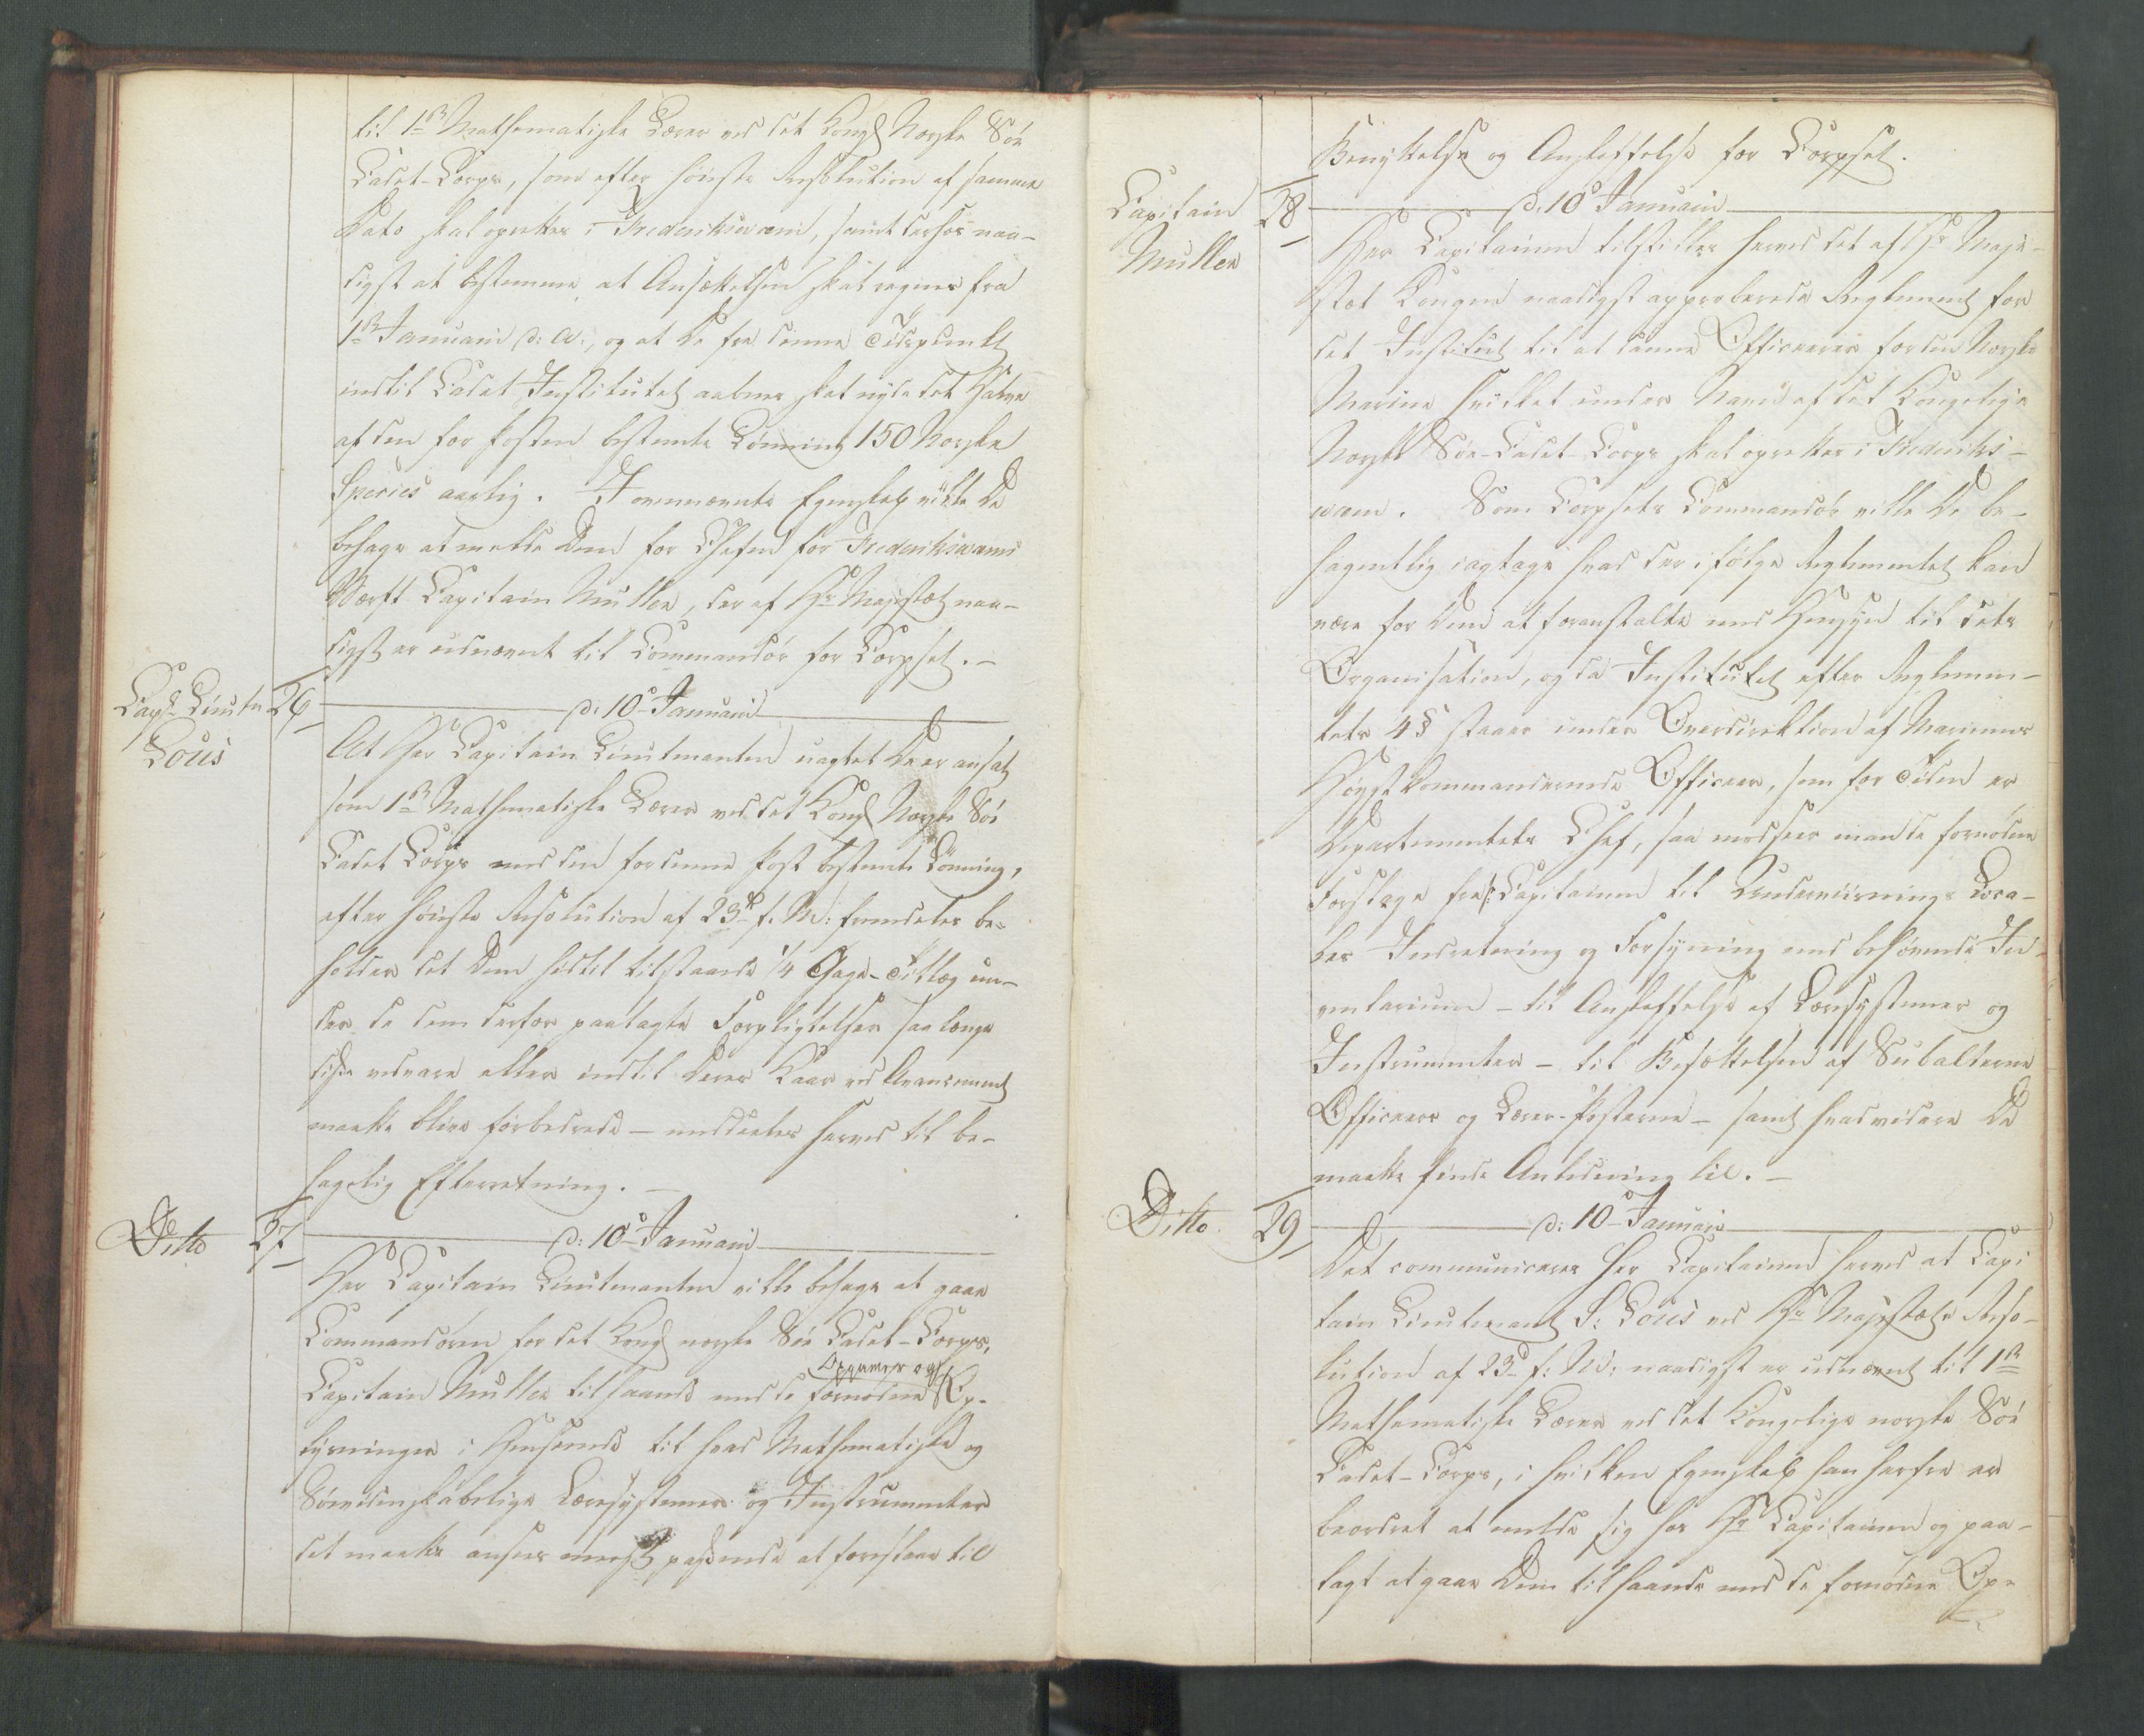 til 1ste Mathematiske Lærer ved det Kongl Norske Söe
Cadet-Corps, som efter höieste Resolution af samme
Dato skal oprettes i Frederiksværn, samt derhos naa-
digst at bestemme, at Ansættelsen skal regnes fra
1ste Januarii d: A:, og at De fra denne Tidspunkt
indtil Cadet Institutet aabnes skal nyde det Halve
af den for Posten bestemte Lönning 150 Norske
Species aarlig. I ovennævnte Egenskab ville De
behage at melde Dem for Chefen for Frederiksværns
Værft Capitain Müller, der af Hs Majestæt naa-
digst er udnævnt til Commandör for Corpset.-
Capt Lieutn
Lous
26
d: 10 Januarii
At Her Capitain Lieutenanten uagtet De er ansat
som 1ste Mathematiske Lærer ved det Kongl Norske Söe
Cadet Corps med den for denne Post bestemte Lönning,
efter höieste Resolution af 23d f. M: fremdeles be-
holder det Dem hidtil tilstaaede 1/4 Gage-Tillæg un-
der de Dem derfor paalagte Forpligtelser saa længe
disse vedvare eller indtil Deres Kaar ved Avancement
maatte blive forbedrede - meddeeles herved til be-
hagelig Efterretning.-
Ditto
27
d: 10 Januarii
Her Capitain Lieutenanten ville behage at gaae
Commandören for det Kongl norske Söe Cadet-Corps,
Capitain Müller tilhaande med de fornödne Op-
lysninger i Henseende til hvad Mathematiske og
Söevidenskabelige Læresystemer og Instrumenter
det maatte ansees meest passende at foreslaae til
Benyttelse og Anskaffelse for Corpset.
Capitain
Müller
28
d. 10 Januarii
Her Capitainen tilstilles herved det af Hs Maje-
stæt Kongen naadigst approberede Reglement for
det Institut til at danne Officerer for den Norske
Marine hvilket under Navn af det Kongelige
Norske Söe-Cadet-Corps skal oprettes i Frederiks-
værn. Som Corpsets Commandör ville De be-
hagentlig iagttage hvad der ifölge Reglementet kan
være for Dem at foranstalte med Hensyn til dets
Organisation, og da Institutet efter Reglemen-
tets 4 § staaer under Overdirektion af Marinens
Höyst Commanderende Officeer, som for Tiden er
Departementets Chef, saa imodseer man de fornödne
Forslage fra Hr Capitainen til Underviisnings Loca-
lets Indretning og Forsyning med behörende In-
ventarium - til Anskaffelse af Læresystemer og
Instrumenter - til Besættelsen af Subalterne
Officeers og Lærer-Posterne - samt hvad videre De
maatte finde Anledning til.-
Ditto
29
d: 10 Januarii
Det communiceres Her Capitainen herved at Capi
tain Lieutenant S: Lous ved Hs Majestæts Reso-
lution af 23d f: M: naadigst er udnævnt til 1ste
Mathematiske Lærer ved det Kongelige norske Söe
Cadet-Corps, i hvilken Egenskab han herfra er
beordret at melde sig hos Hr Capitainen og paa-
lagt at gaae Dem tilhaande med de fornödne Op-